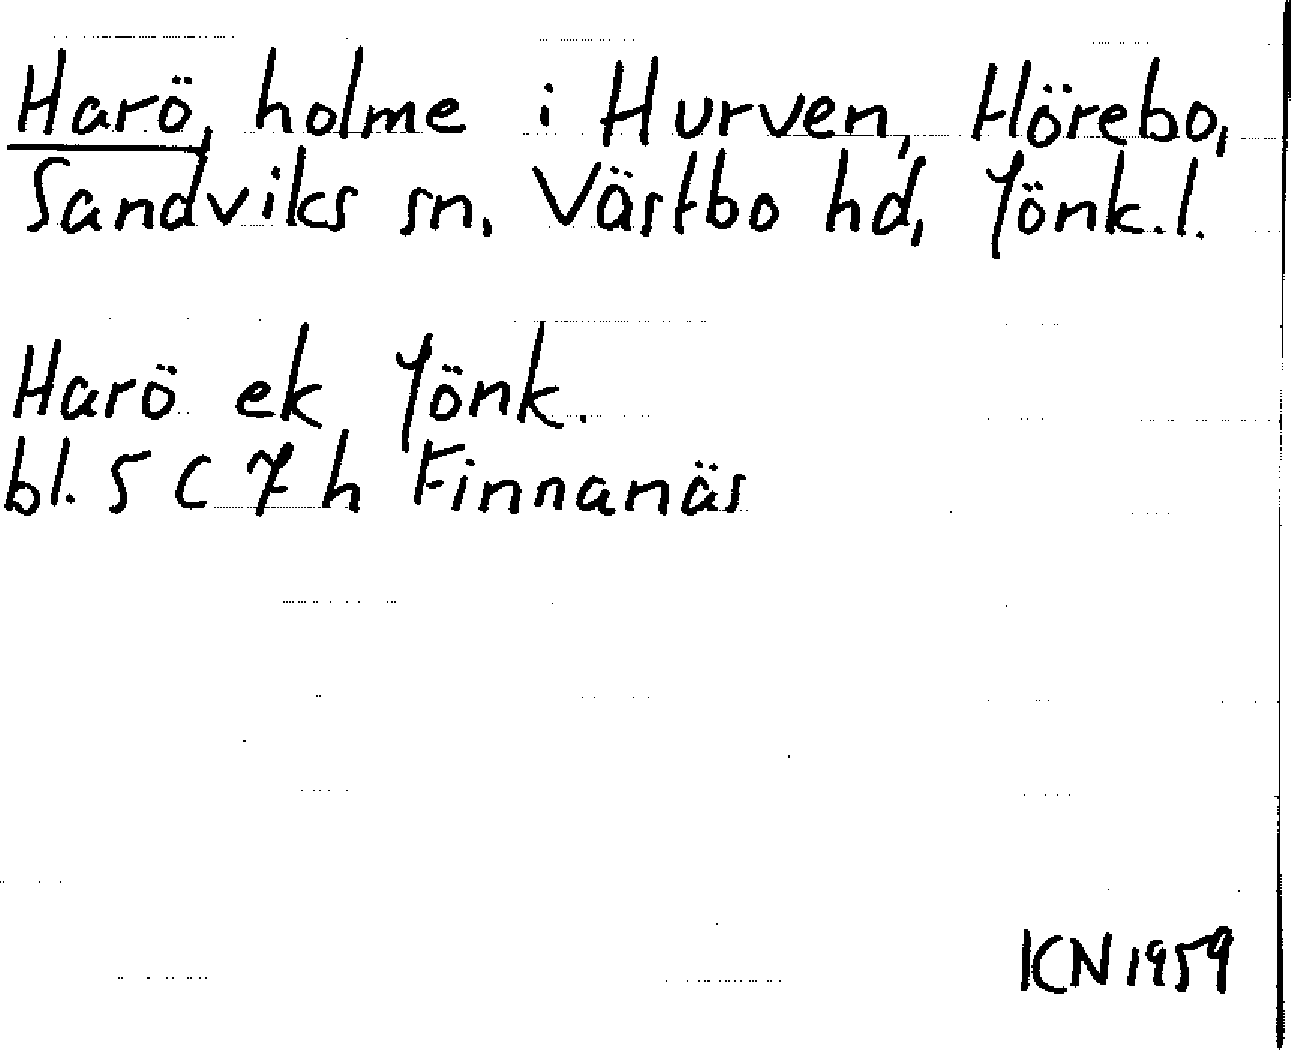 Harö, holme i Hurven, Hörebo,
Sandviks sn, Västbo hd, Jönk.l.
Harö ek Jönk.
bl. 5 C 7 h Finnanäs
KN 1959